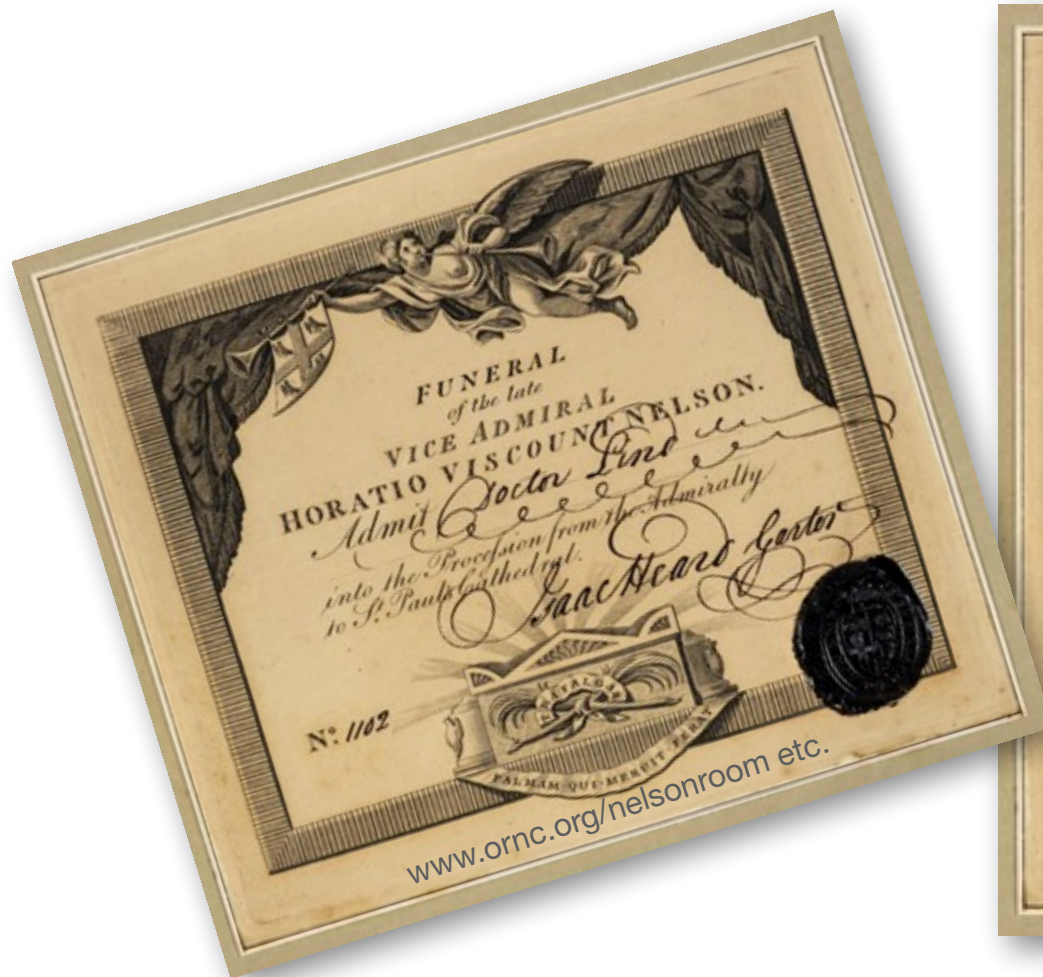 FUNERAL
of the late
VICE ADMIRAL
HORATIO VISCOUNT NELSON.
Admit Doctor Lind
into the Procession from the Admiralty
to St. Pauls Cathedral.
Isaac Heard Garter
No. 1102
TRAFALGAR
PALMAM·QUI·MERUIT·FERAT
www.ornc.org/nelsonroom etc.